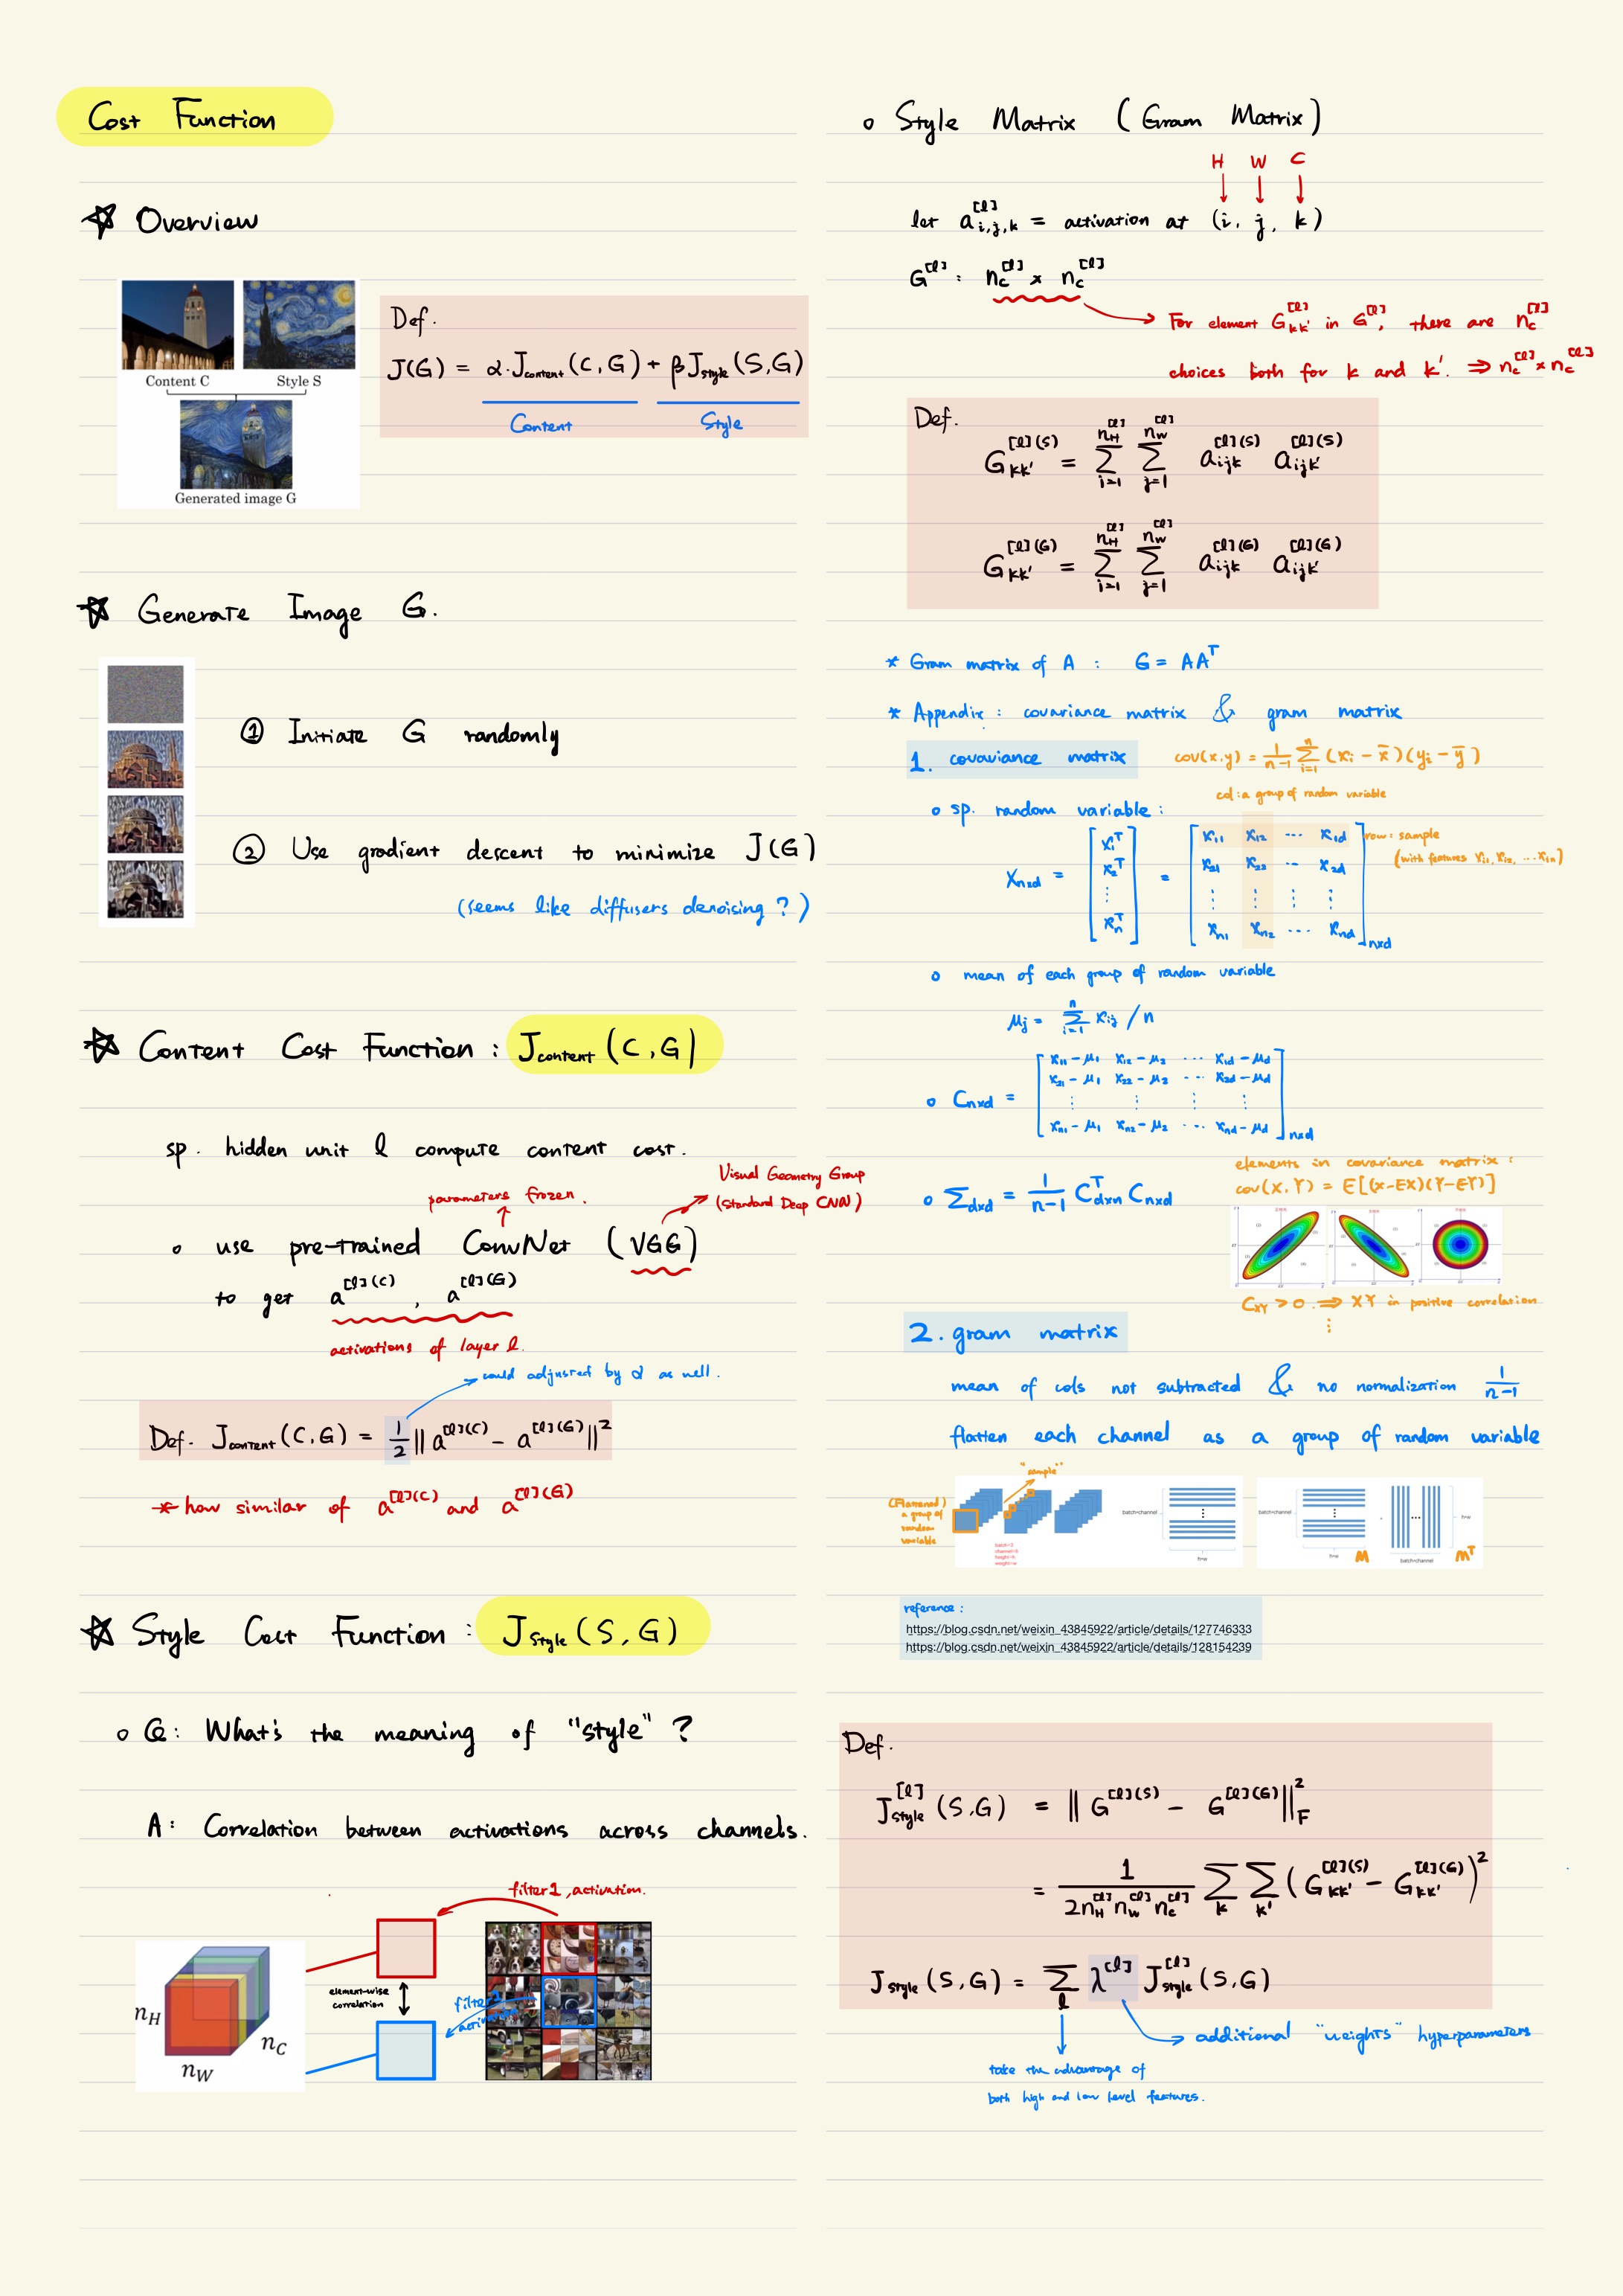 Cost Function
☆ Overview
Content C
Style S
Generated image G
Def.
J(G) = α.J_content(C,G) + βJ_style(S,G)
Content
Style
☆ Generate Image G.
① Initiate G randomly
② Use gradient descent to minimize J(G)
(seems like diffusers denoising?)
☆ Content Cost Function : J_content(C,G)
sp. hidden unit l compute content cost.
parameters frozen.
Visual Geometry Group
(Standard Deep CNN)
o use pre-trained ConvNet (VGG)
to get a^[l](C), a^[l](G)
activations of layer l.
could adjusted by α as well.
Def. J_content(C,G) = 1/2 || a^[l](C) - a^[l](G) ||^2
* how similar of a^[l](C) and a^[l](G)
☆ Style Cost Function : J_style(S,G)
o Q: What's the meaning of "style"?
A: Correlation between activations across channels.
filter1, activation.
element-wise
correlation
filter2
n_H
n_W
n_C
o Style Matrix (Gram Matrix)
H W C
let a^[l]_i,j,k = activation at (i, j, k)
G^[l] : n_c^[l] x n_c^[l]
For element G^[l]_kk' in G^[l], there are n_c^[l]
choices both for k and k'. ⇒ n_c^[l] x n_c^[l]
Def.
G_kk'^[l](S) = Σ_{i=1}^{n_H^[l]} Σ_{j=1}^{n_W^[l]} a_ijk^[l](S) a_ijk'^[l](S)
G_kk'^[l](G) = Σ_{i=1}^{n_H^[l]} Σ_{j=1}^{n_W^[l]} a_ijk^[l](G) a_ijk'^[l](G)
* Gram matrix of A : G = AA^T
* Appendix : covariance matrix & gram matrix
1. covariance matrix
cov(x,y) = 1/(n-1) Σ_{i=1}^{n} (x_i - x̄)(y_i - ȳ)
col: a group of random variable
o sp. random variable :
X_nxd = [x_1^T x_2^T ⋮ x_n^T] = [x_11 x_12 ... x_1d
x_21 x_22 ... x_2d
⋮ ⋮ ⋮ ⋮
x_n1 x_n2 ... x_nd]_nxd
row: sample
(with features x_i1, x_i2, ... x_in)
o mean of each group of random variable
μ_j = Σ_{i=1}^{n} x_ij / n
o C_nxd = [x_11 - μ_1 x_12 - μ_2 ... x_1d - μ_d
x_21 - μ_1 x_22 - μ_2 ... x_2d - μ_d
⋮ ⋮ ⋮ ⋮
x_n1 - μ_1 x_n2 - μ_2 ... x_nd - μ_d]_nxd
elements in covariance matrix :
cov(X,Y) = E[(X-EX)(Y-EY)]
o Σ_dxd = 1/(n-1) C^T_dxn C_nxd
C_XY > 0 ⇒ XY in positive correlation
⋮
2. gram matrix
mean of cols not subtracted & no normalization 1/(n-1)
flatten each channel as a group of random variable
"sample"
(Flattened)
a group of
random
variable
batch=3
channel=6
height=h
weight=w
batch×channel
h×w
batch×channel
h×w
M
batch×channel
h×w
M^T
reference :
https://blog.csdn.net/weixin_43845922/article/details/127746333
https://blog.csdn.net/weixin_43845922/article/details/128154239
Def.
J_style^[l](S,G) = || G^[l](S) - G^[l](G) ||_F^2
= 1/(2n_H^[l] n_W^[l] n_c^[l]) Σ_k Σ_k' (G_kk'^[l](S) - G_kk'^[l](G))^2
J_style(S,G) = Σ_l λ^[l] J_style^[l](S,G)
additional "weights" hyperparameters
take the advantage of
both high and low level features.